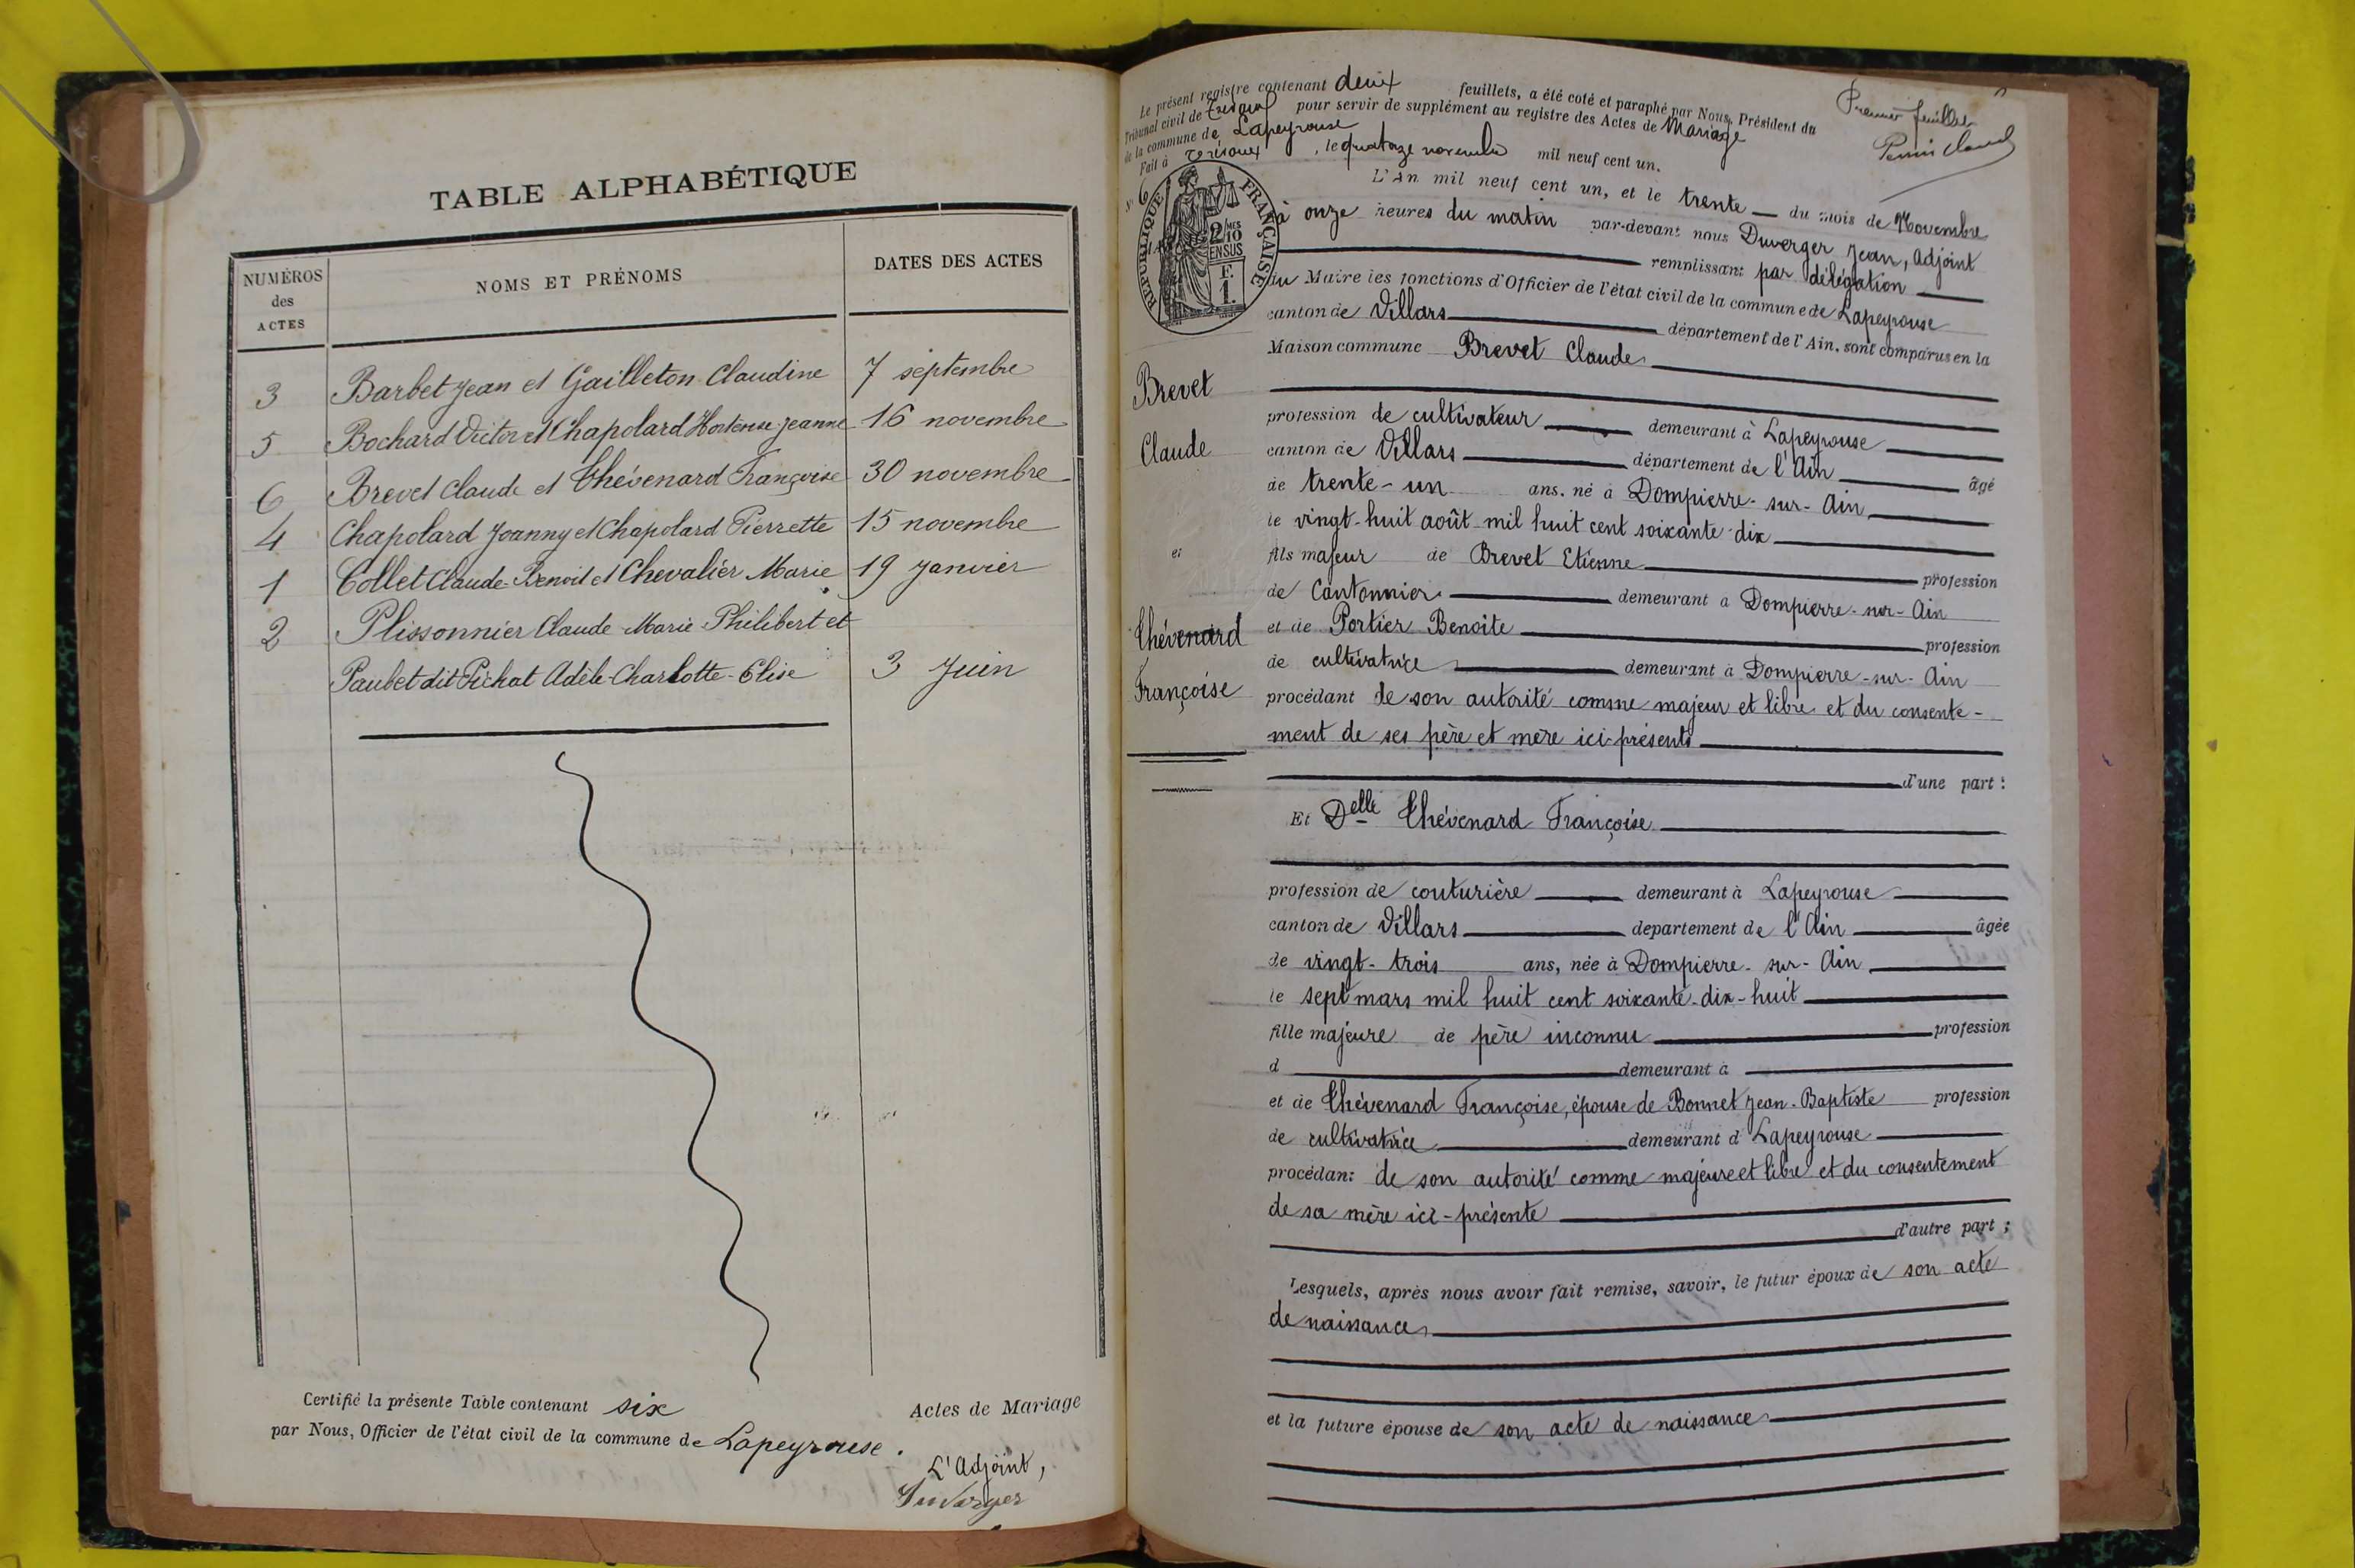 TABLE ALPHABÉTIQUE
NUMÉROS des ACTES
NOMS ET PRÉNOMS
DATES DES ACTES
3 Barbet Jean et Gailleton Claudine 7 septembre
5 Bochard Victor et Chapolard Hortense Jeanne 16 novembre
6 Brevet Claude et Thévenard Françoise 30 novembre
4 Chapolard Joanny et Chapolard Pierrette 15 novembre
1 Collet Claude-Benoit et Chevalier Marie 19 Janvier
2 Plissonnier Claude-Marie-Philibert et
Paubet dit Pichat Adèle-Charlotte-Elise 3 Juin
Certifié la présente Table contenant six Actes de Mariage
par Nous, Officier de l'état civil de la commune de Lapeyrouse.
L'Adjoint,
Duverger
Le présent registre contenant deux feuillets, a été coté et paraphé par Nous, Président du
Tribunal civil de Trévoux pour servir de supplément au registre des Actes de Mariage
de la commune de Lapeyrouse
Fait à Trévoux, le quatorze novembre mil neuf cent un.
Premier feuillet
N° 6
RÉPUBLIQUE FRANÇAISE
2/10 MES
EN SUS
F.
1.
L'An mil neuf cent un, et le trente du mois de Novembre
à onze heures du matin par-devant nous Duverger Jean, Adjoint
remplissant par délégation
du Maire les fonctions d'Officier de l'état civil de la commune de Lapeyrouse
canton de Villars département de l'Ain, sont comparus en la
Maison commune Brevet Claude
Brevet
Claude
et
Thévenard
Françoise
profession de cultivateur demeurant à Lapeyrouse
canton de Villars département de l'Ain âgé
de trente-un ans, né à Dompierre-sur-Ain
le vingt-huit août mil huit cent soixante-dix
fils majeur de Brevet Etienne profession
de Cantonnier demeurant à Dompierre-sur-Ain
et de Portier Benoite profession
de cultivatrice demeurant à Dompierre-sur-Ain
procédant de son autorité comme majeur et libre et du consente-
ment de ses père et mère ici-présents
d'une part :
Et Delle Thévenard Françoise
profession de couturière demeurant à Lapeyrouse
canton de Villars département de l'Ain âgée
de vingt-trois ans, née à Dompierre-sur-Ain
le sept mars mil huit cent soixante-dix-huit
fille majeure de père inconnu profession
d demeurant à
et de Thévenard Françoise, épouse de Bonnet Jean-Baptiste profession
de cultivatrice demeurant à Lapeyrouse
procédant de son autorité comme majeure et libre et du consentement
de sa mère ici-présente
d'autre part ;
Lesquels, après nous avoir fait remise, savoir, le futur époux de son acte
de naissance
et la future épouse de son acte de naissance